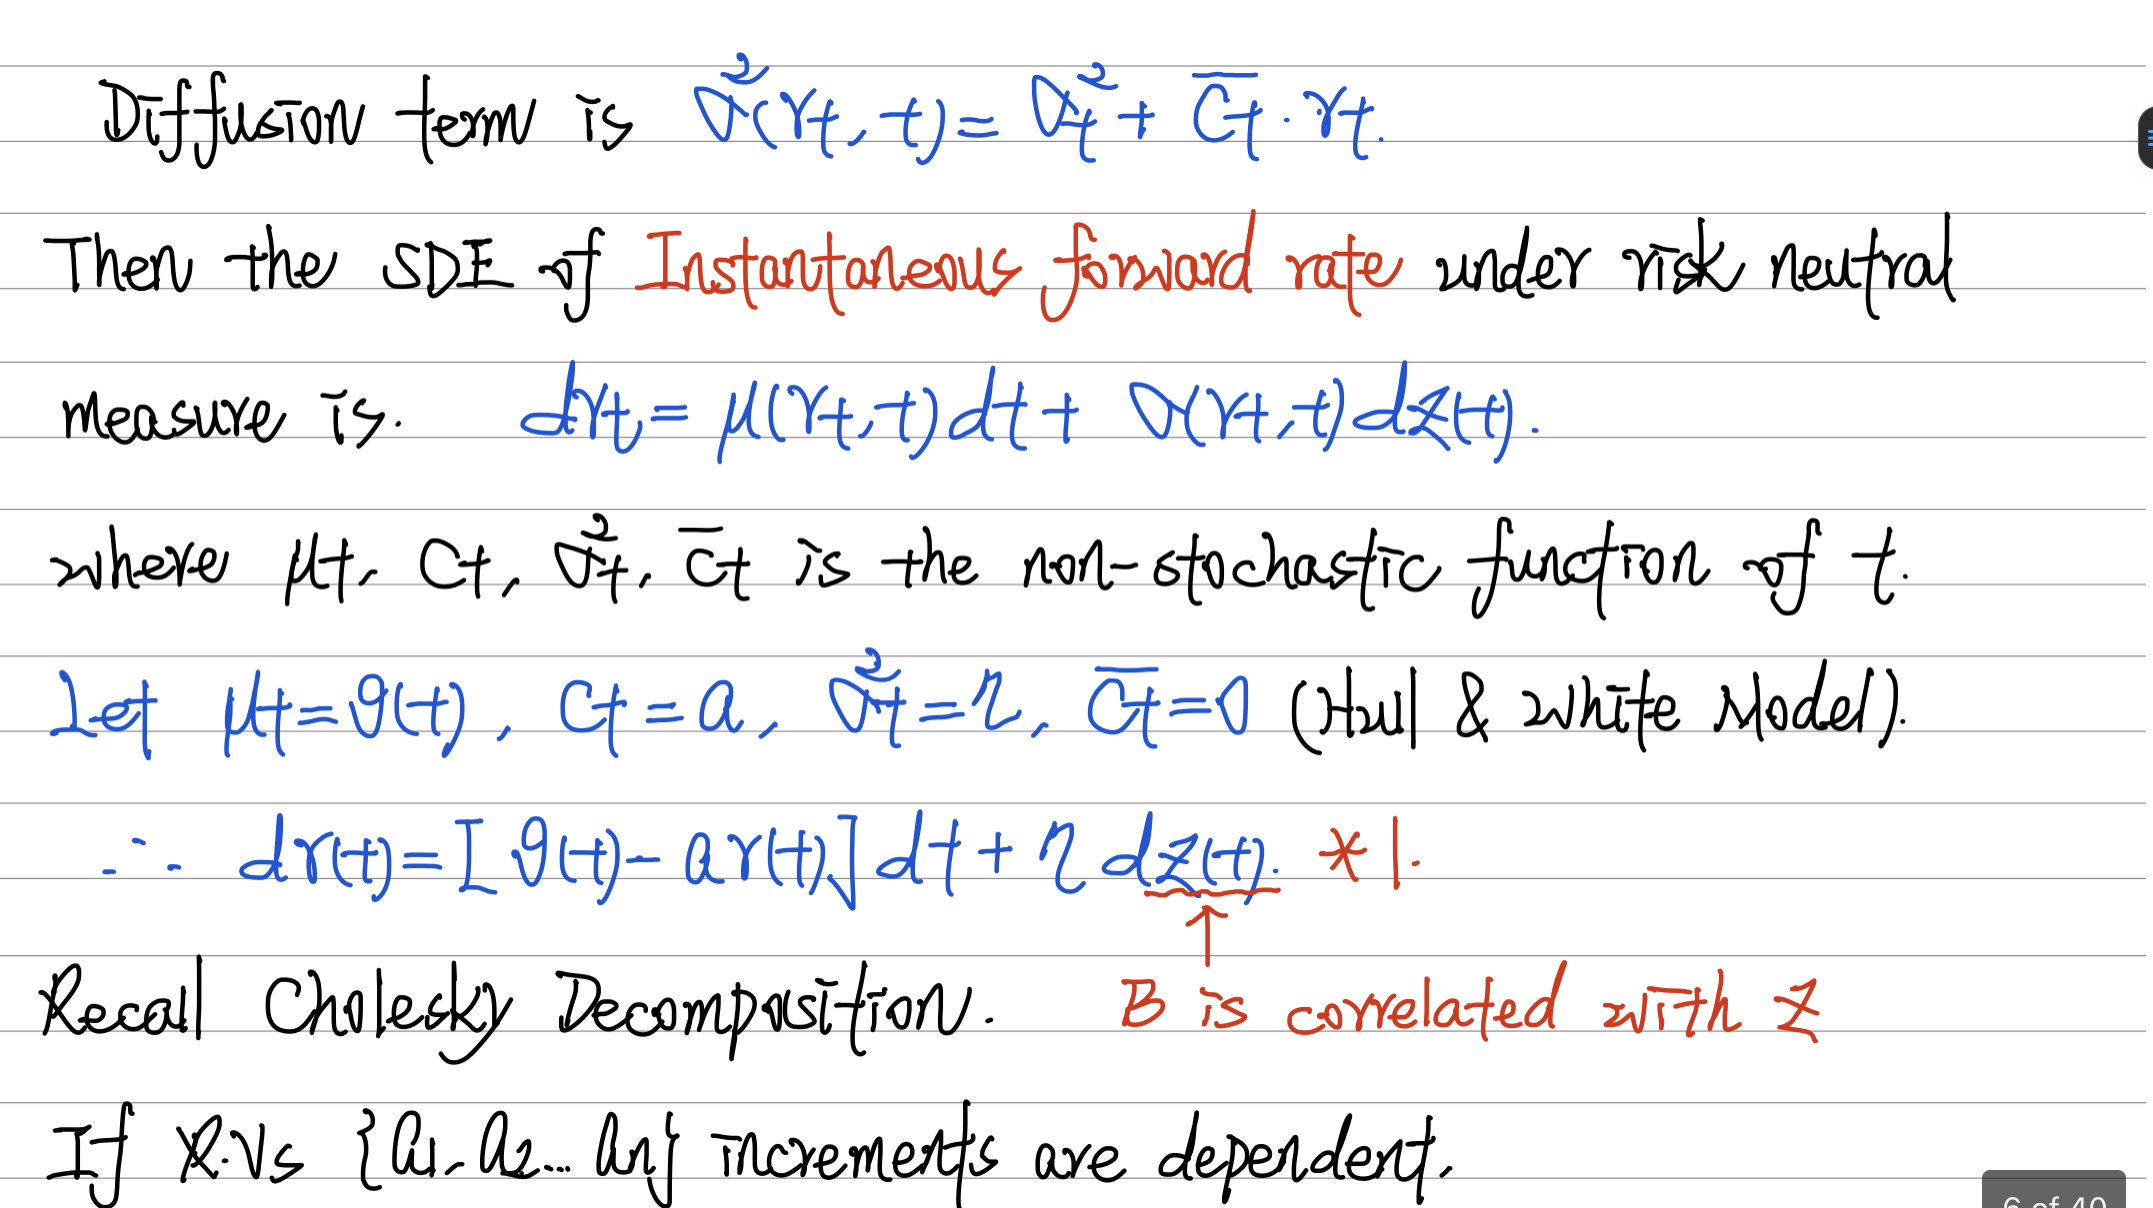 Diffusion term is σ²(rt, t) = σt² + c̄t · rt.
Then the SDE of Instantaneous forward rate under risk neutral
measure is. drt = μ(rt, t) dt + σ(rt, t) dz(t).
where μt, ct, σt², c̄t is the non-stochastic function of t.
Let μt = θ(t), ct = a, σt² = η, c̄t = 0 (Hull & White Model).
∴ dr(t) = [θ(t) - ar(t)] dt + η dz(t). *1.
↑
Recall Cholesky Decomposition. B is correlated with z
If R.Vs {a1, a2... an} increments are dependent,
6 of 40